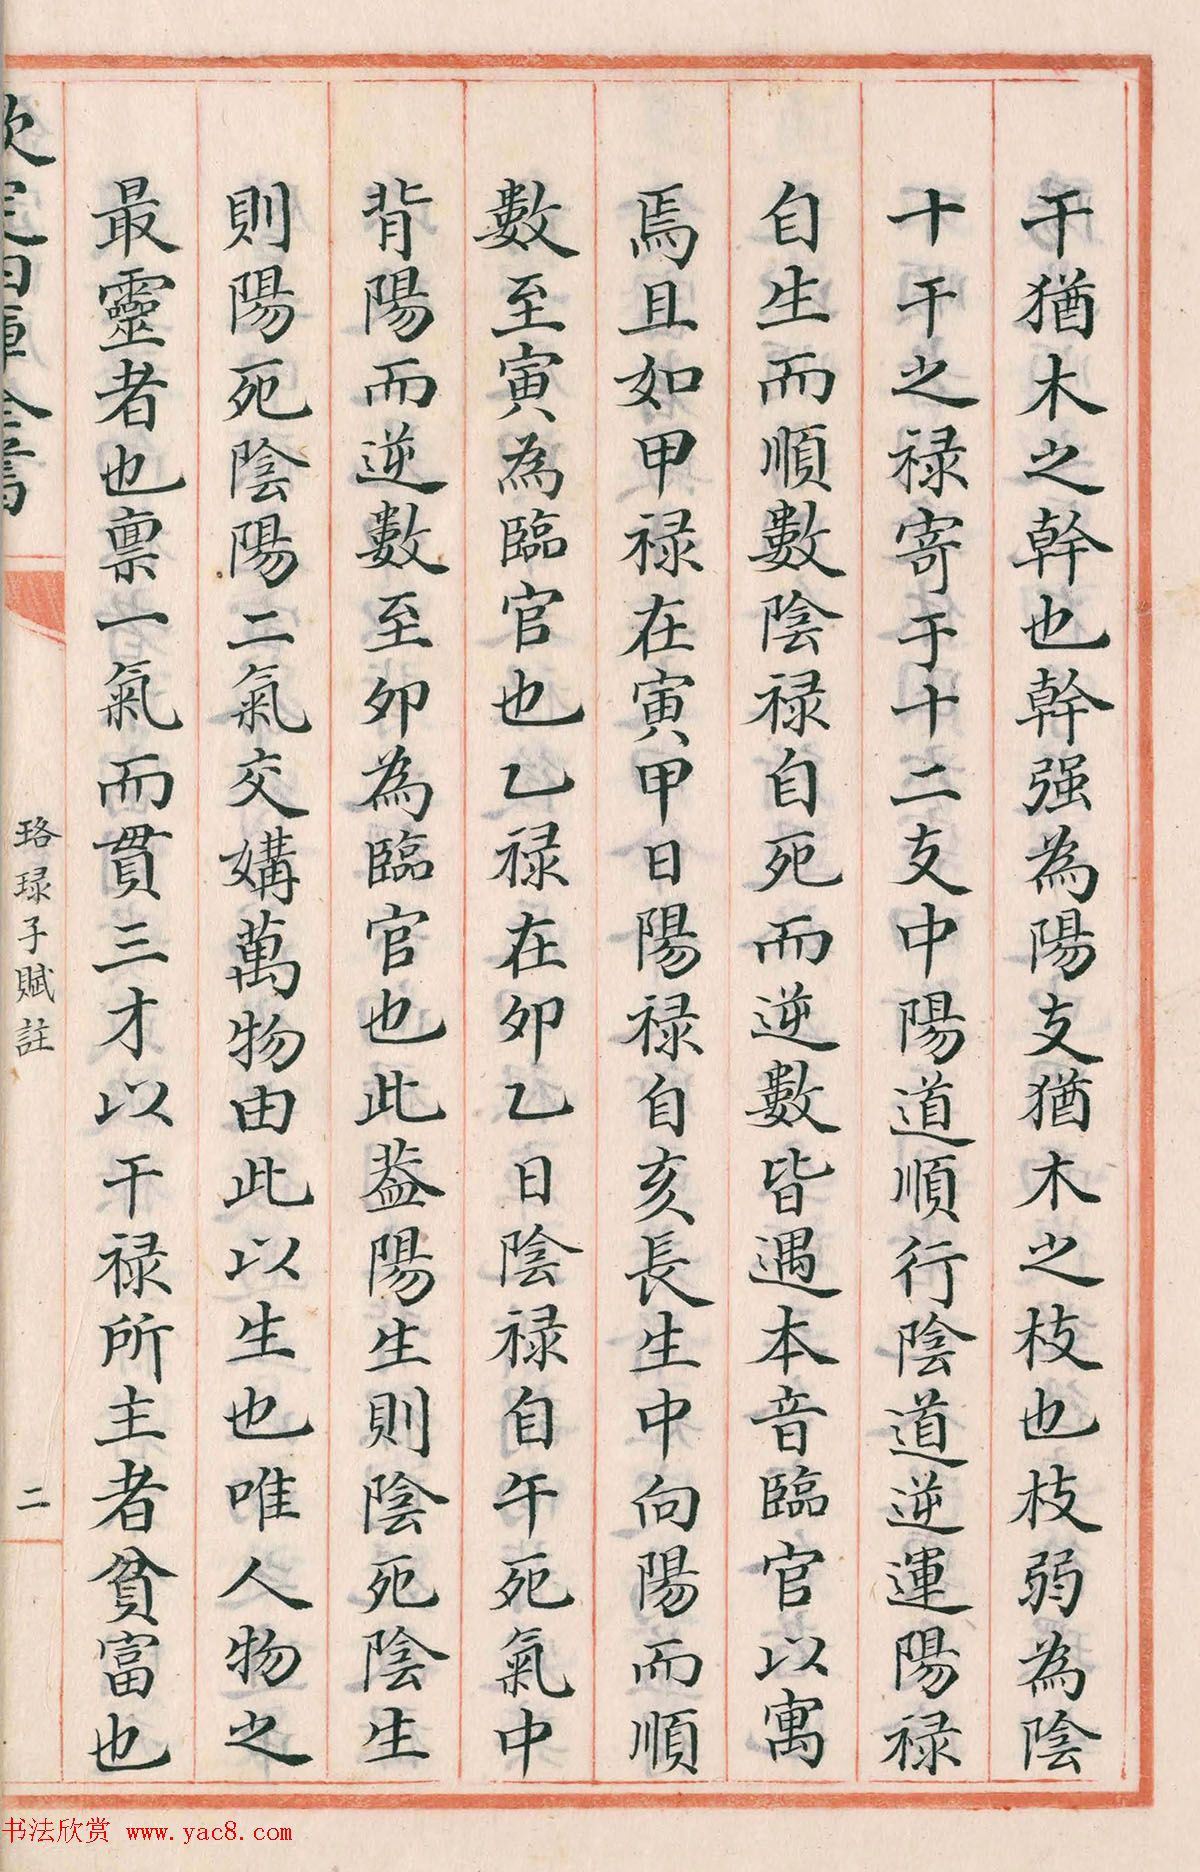 干猶木之幹也幹强為陽支猶木之枝也枝弱為陰
十干之禄寄于十二支中陽道順行陰道逆運陽禄
自生而順數陰禄自死而逆數皆遇本音臨官以寓
焉且如甲禄在寅甲日陽禄自亥長生中向陽而順
數至寅為臨官也乙禄在卯乙日陰禄自午死氣中
背陽而逆數至卯為臨官也此葢陽生則陰死陰生
則陽死陰陽二氣交媾萬物由此以生也唯人物之
最靈者也禀一氣而貫三才以干禄所主者貧富也
欽定四庫全書
珞琭子賦註
二
书法欣赏 www.yac8.com